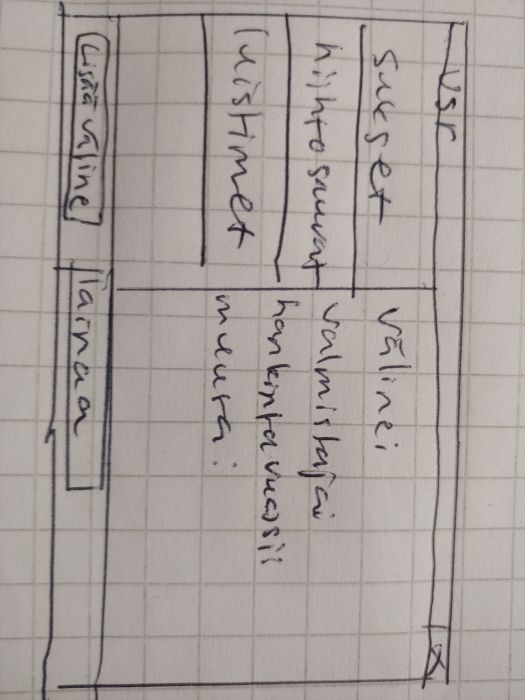 vsr X
sukset
hiihtosauvat
luistimet
väline:
valmistaja:
hankintavuosi:
muuta:
Lisää väline
lainaa